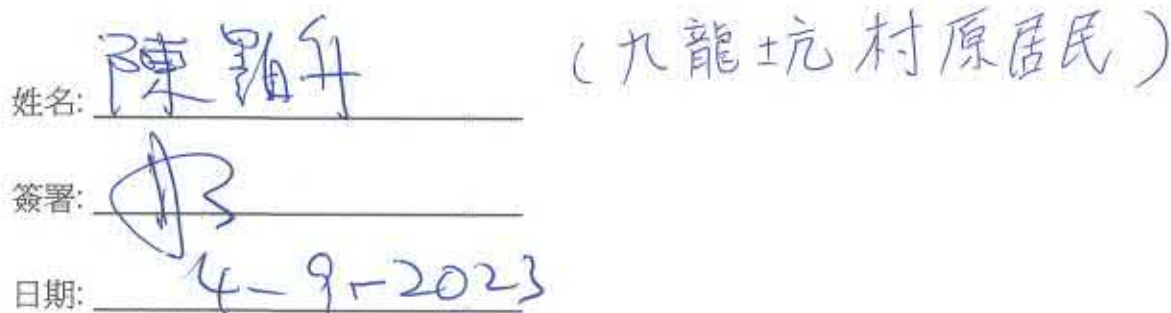 姓名: 陳 升 (九龍坑村原居民)
簽署:
日期: 4-9-2023